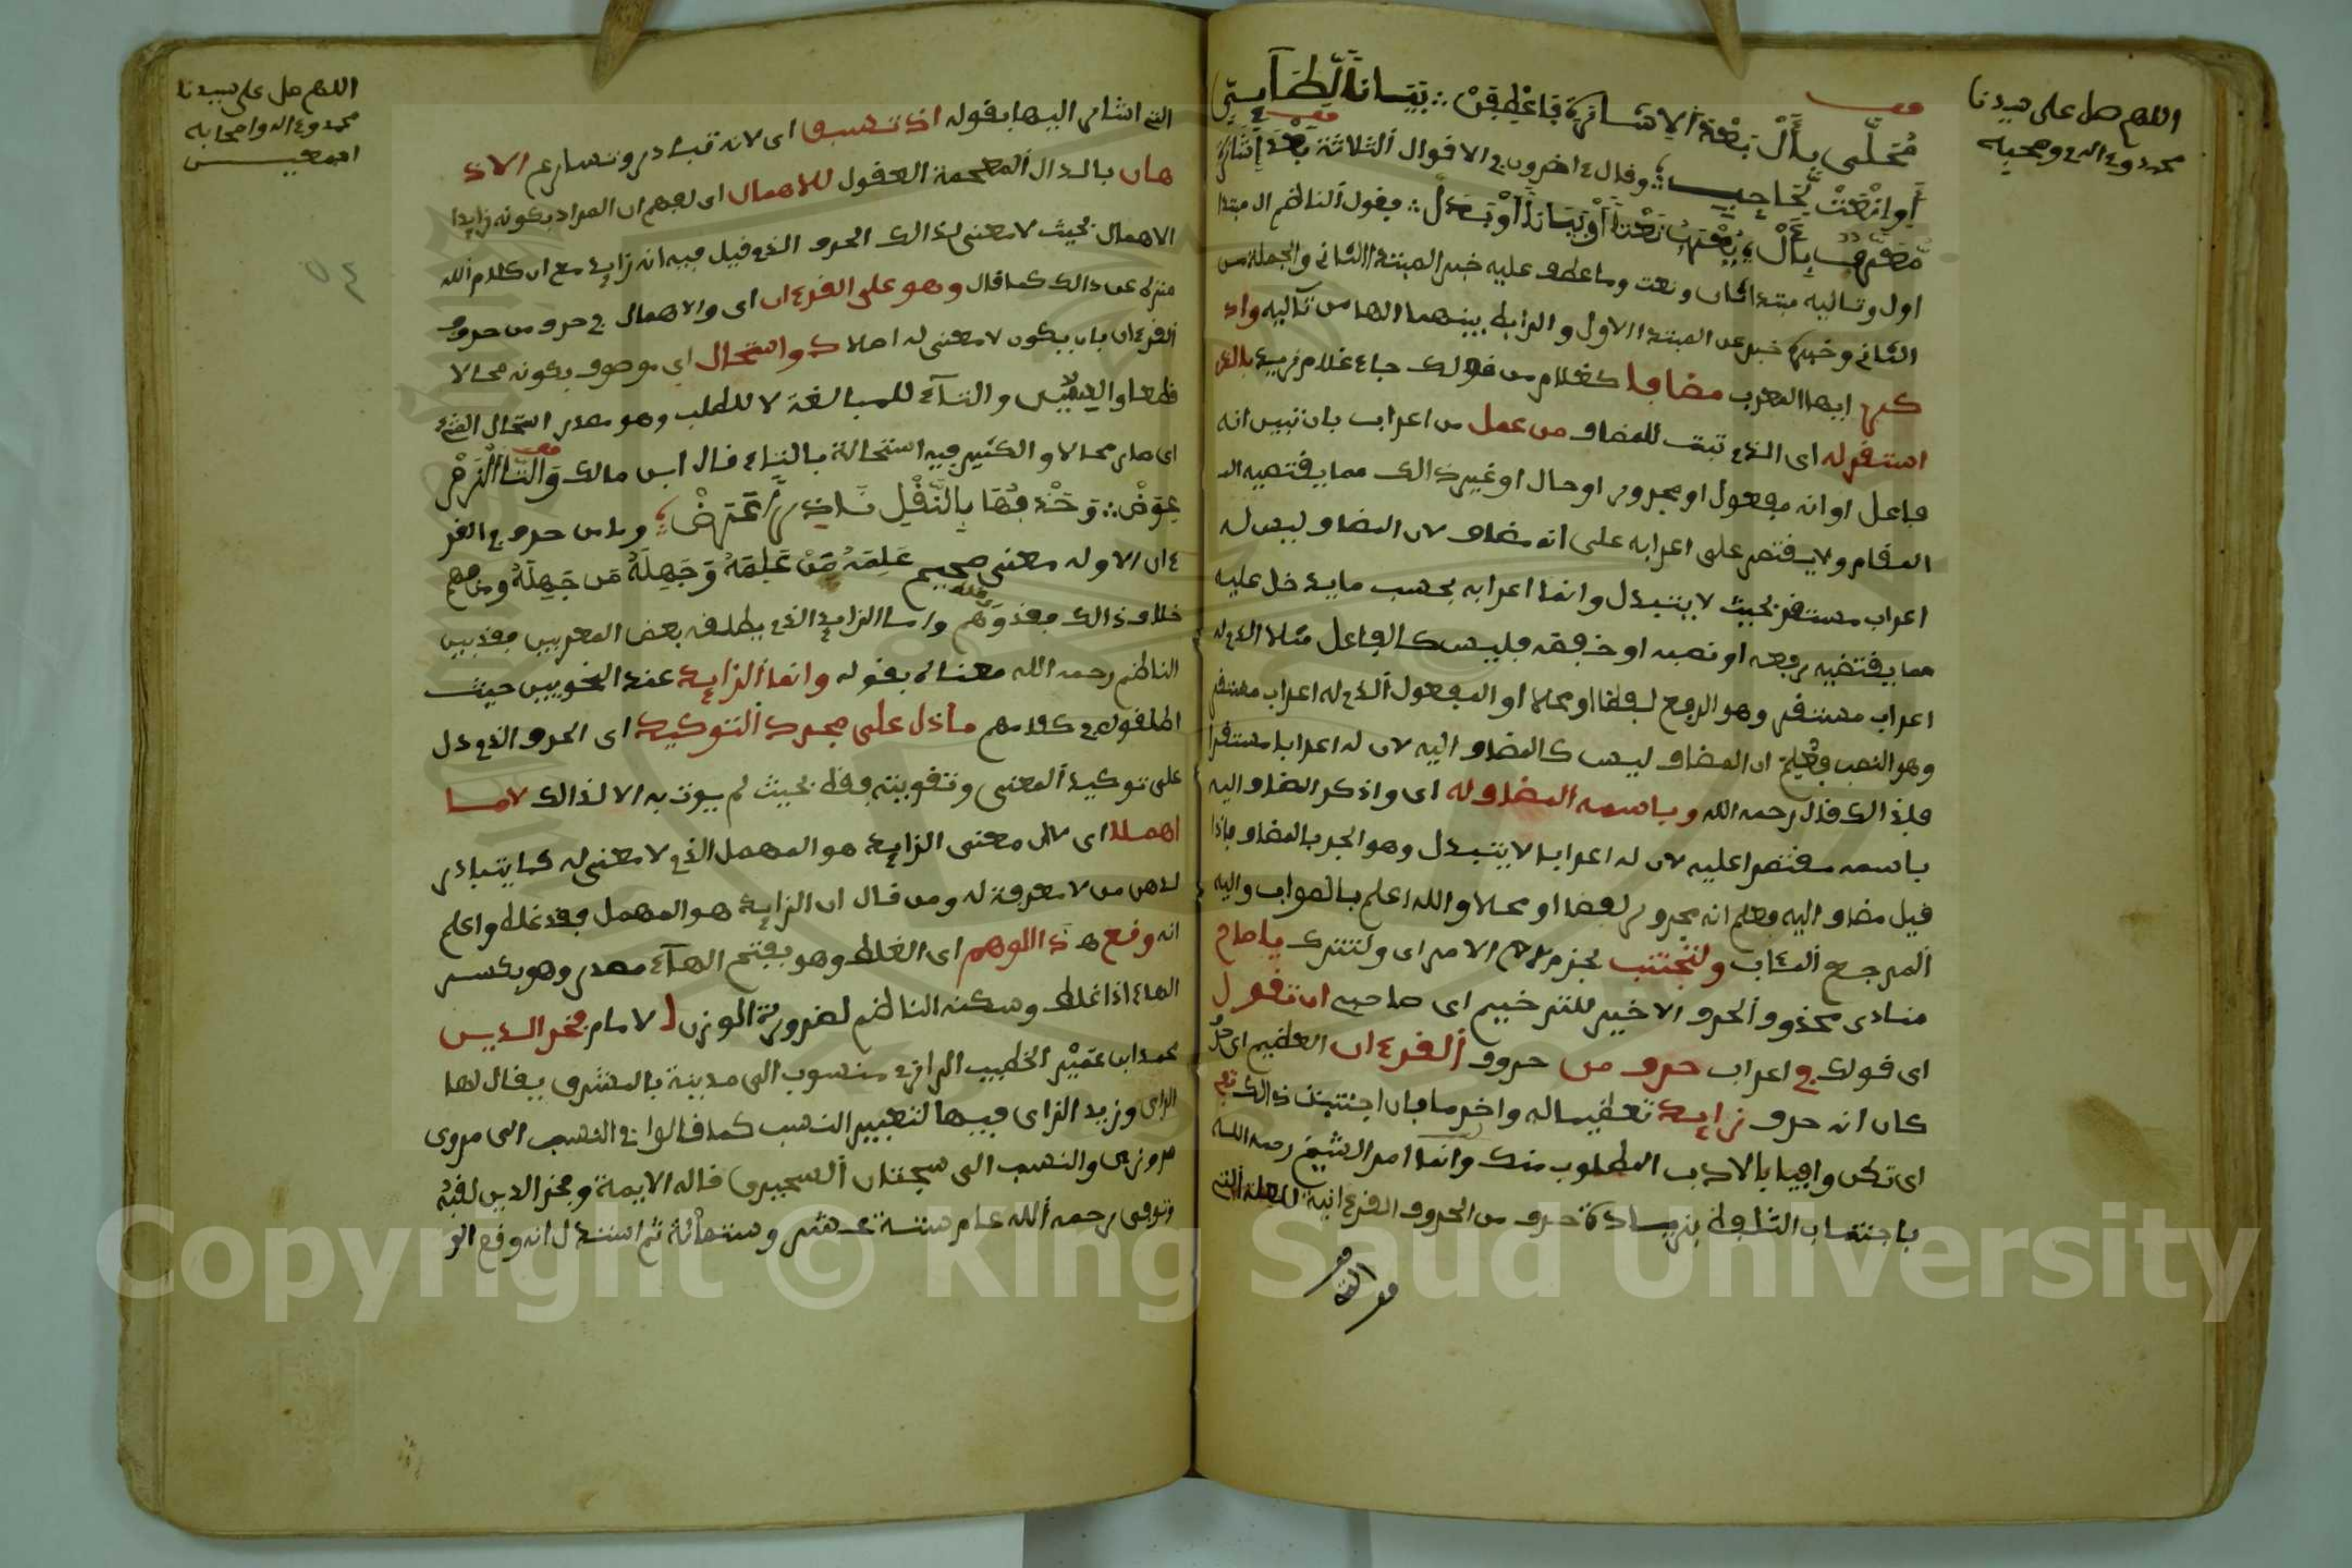 اللهم صل على سيدنا
محمد وءاله وصحبه
محلى بأل بعد الاشارة فاعطفن ∴ بيانا
أو انعت لحاجب وقال ءاخرون في الاقوال الثلاثة بعد اشارة
معرف بأل يعرب نعتا أو بيانا أو بدل ∴ فقول الناظم ال مبتدا
اول وتاليه مبتدا ثان ونعت وما عطف عليه خبر المبتدا الثاني والجملة من
الثاني وخبره خبر عن المبتدا الاول والرابط بينهما الها من تاليه واذ
كر ايها المعرب مضافا كغلام من قولك جاء غلام زيد بالذى
استقر له اى الذي ثبت للمضاف من عمل من اعراب بان تبين انه
فاعل او انه مفعول او مجرور او حال او غير ذالك مما يقتضيه الـ
المقام ولا يقتصر على اعرابه على انه مضاف لان المضاف ليس له
اعراب مستقر بحيث لا يتبدل وانما اعرابه بحسب ما يدخل عليه
مما يقتضيه رفعه او نصبه او خفضه فليس كالفاعل مثلا الذي له
اعراب مستقر وهو الرفع لفظا او محلا او المفعول الذي له اعراب مستقر
وهو النصب فعلم ان المضاف ليس كالمضاف اليه لان له اعرابا مستقرا
فلذالك قال رحمه الله وباسمه المضاف له اى واذكر المضاف اليه
باسمه مقتصرا عليه لان له اعرابا لا يتبدل وهو الجر بالمضاف فاذا
قيل مضاف اليه فعلم انه مجرور لفظا او محلا والله اعلم بالصواب واليه
المرجع المئاب ولتجتنب بجزم لام الامر اى ولتترك يا صاح
منادى محذوف الحرف الاخير للترخيم اى صاحبي ان تقول
اى قولك في اعراب حرف من حروف القرءان العظيم اى كل
كان انه حرف زايد تعظيما له واحتراما فان اجتنبت ذالك
اى تكن وافيا بالادب المطلوب منك وانما امر الشيخ رحمه الله
باجتناب التلفظ بزيادة حرف من الحروف القرءانية للعلة التي
اللهم صل على سيدنا
محمد وءاله واصحابه
اجمعين
٥٤
التي اشار اليها بقوله اذ تسبق اى لانه تبادر وتسارع الاذ
هان بالدال المعجمة العقول للاهمال اى لفهم ان المراد بكونه زايدا
الاهمال بحيث لا معنى لذالك الحرف الذي قيل فيه انه زايد مع ان كلام الله
منزه عن ذالك كما قال وهو على القرءان اى والاهمال في حرف من حروف
القرءان بان يكون لا معنى له اصلا ذو استحال اى موصوف بكونه محالا
قطعا والسين والتاء للمبالغة لا للطلب وهو مصدر استحال الشئ
اى صار محالا والكثير فيه استحالة بالتاء قال ابن مالك والتا الزم
عوض ∴ وحذفها بالنقل وما من حرف في القر
ءان الا وله معنى صحيح علمه من علمه وجهله من جهله ومن فهم
خلاف ذالك فقد وهم واما الزايد الذي يطلقه بعض المعربين فقد بين
الناظم رحمه الله معناه بقوله وانما الزايد عند النحويين حيث
اطلقوه في كلامهم ما دل على مجرد التوكيد اى الحرف الذي دل
على توكيد المعنى وتقويته فقط بحيث لم يوت به الا لذالك لا ما
اهملا اى لان معنى الزايد هو المهمل الذي لا معنى له كما يتبادر
لذهن من لا معرفة له ومن قال ان الزايد هو المهمل فقد غلط واعلم
انه وقع هذا الوهم اى الغلط وهو بفتح الهاء مصدر وهو بكسر
الهاء اذا غلط وسكنه الناظم لضرورة الوزن للامام فخر الدين
محمد ابن عمير الخطيب الرازي منسوب الى مدينة بالمشرق يقال لها
الراى وزيد الزاى فيها لتغيير النسب كما قالوا في النسب الى مروى
مروزى والنسب الى سجستان السجزى قاله الايمة وفخر الدين لقبه
وتوفى رحمه الله عام ستة عشر وستمائة ثم استدل انه وقع الو